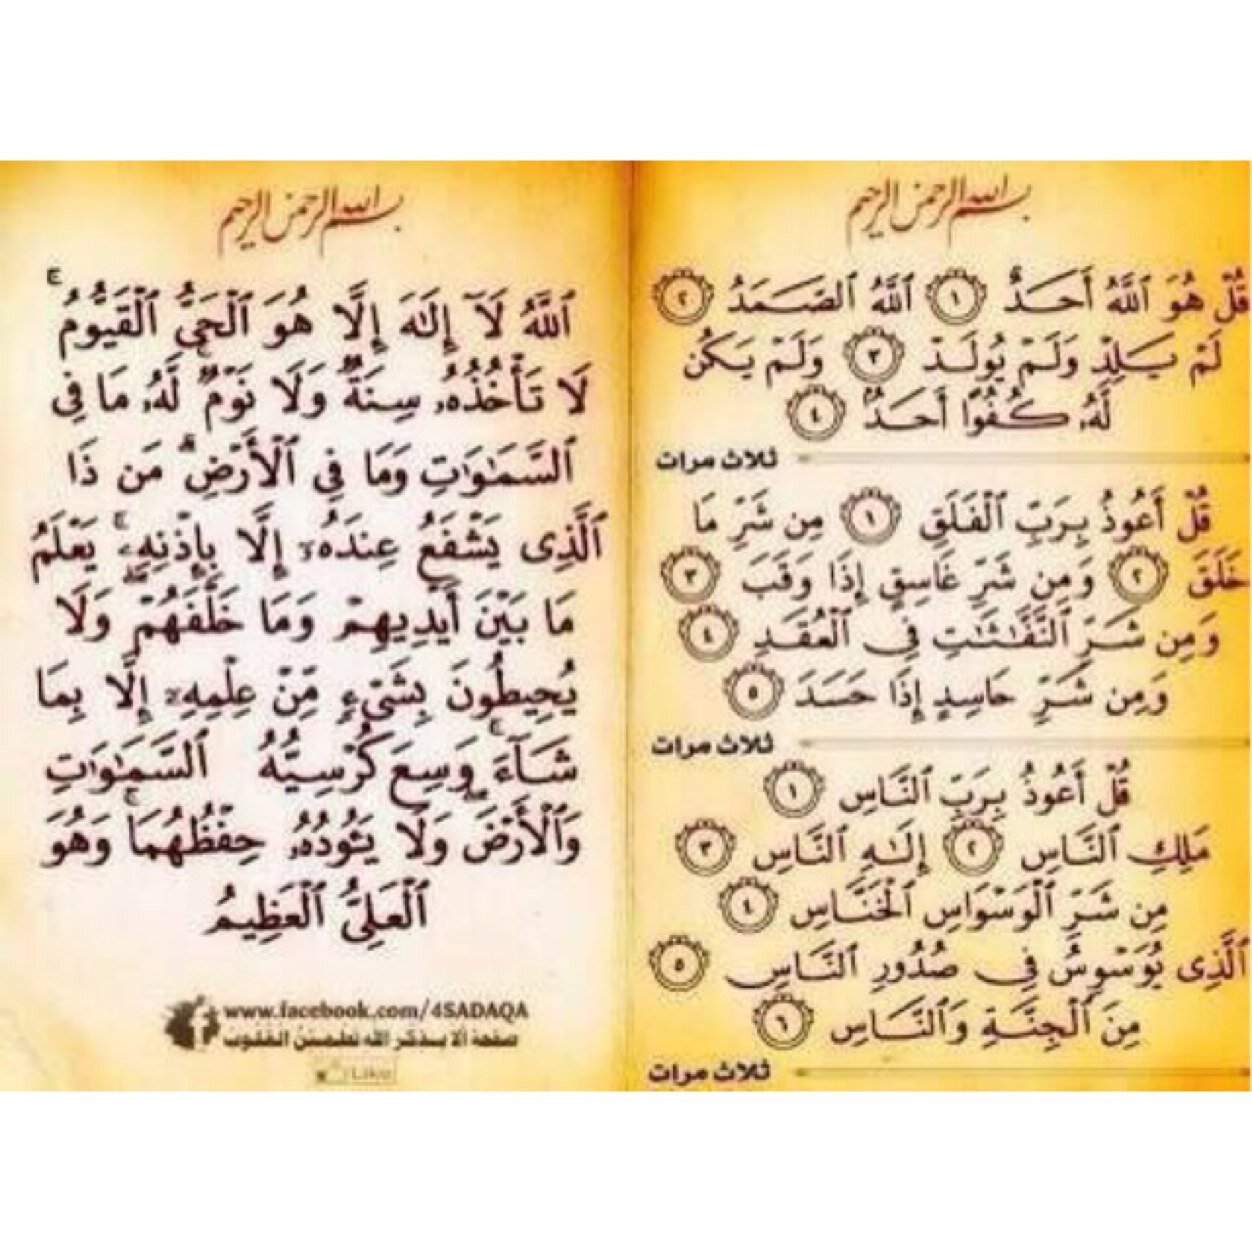 بسم الله الرحمن الرحيم
قُلْ هُوَ ٱللَّهُ أَحَدٌ ١ ٱللَّهُ ٱلصَّمَدُ ٢
لَمْ يَلِدْ وَلَمْ يُولَدْ ٣ وَلَمْ يَكُن
لَّهُۥ كُفُوًا أَحَدٌۢ ٤
ثلاث مرات
قُلْ أَعُوذُ بِرَبِّ ٱلْفَلَقِ ١ مِن شَرِّ مَا
خَلَقَ ٢ وَمِن شَرِّ غَاسِقٍ إِذَا وَقَبَ ٣
وَمِن شَرِّ ٱلنَّفَّٰثَٰتِ فِى ٱلْعُقَدِ ٤
وَمِن شَرِّ حَاسِدٍ إِذَا حَسَدَ ٥
ثلاث مرات
قُلْ أَعُوذُ بِرَبِّ ٱلنَّاسِ ١
مَلِكِ ٱلنَّاسِ ٢ إِلَٰهِ ٱلنَّاسِ ٣
مِن شَرِّ ٱلْوَسْوَاسِ ٱلْخَنَّاسِ ٤
ٱلَّذِى يُوَسْوِسُ فِى صُدُورِ ٱلنَّاسِ ٥
مِنَ ٱلْجِنَّةِ وَٱلنَّاسِ ٦
ثلاث مرات
بسم الله الرحمن الرحيم
ٱللَّهُ لَآ إِلَٰهَ إِلَّا هُوَ ٱلْحَىُّ ٱلْقَيُّومُ ۚ
لَا تَأْخُذُهُۥ سِنَةٌ وَلَا نَوْمٌ ۚ لَّهُۥ مَا فِى
ٱلسَّمَٰوَٰتِ وَمَا فِى ٱلْأَرْضِ ۗ مَن ذَا
ٱلَّذِى يَشْفَعُ عِندَهُۥٓ إِلَّا بِإِذْنِهِۦ ۚ يَعْلَمُ
مَا بَيْنَ أَيْدِيهِمْ وَمَا خَلْفَهُمْ ۖ وَلَا
يُحِيطُونَ بِشَىْءٍ مِّنْ عِلْمِهِۦٓ إِلَّا بِمَا
شَآءَ ۚ وَسِعَ كُرْسِيُّهُ ٱلسَّمَٰوَٰتِ
وَٱلْأَرْضَ ۖ وَلَا يَـُٔودُهُۥ حِفْظُهُمَا ۚ وَهُوَ
ٱلْعَلِىُّ ٱلْعَظِيمُ
www.facebook.com/4SADAQA
صفحة ألا بذكر الله تطمئن القلوب
Like